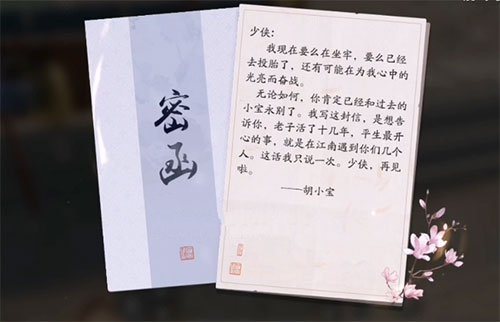 密函
少侠：
我现在要么在坐牢，要么已经
去投胎了，还有可能在为我心中的
光亮而奋战。
无论如何，你肯定已经和过去的
小宝永别了。我写这封信，是想告
诉你，老子活了十几年，平生最开
心的事，就是在江南遇到你们几个
人。这话我只说一次。少侠，再见
啦。
——胡小宝